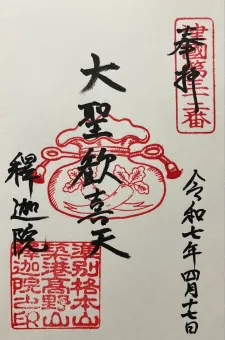 奉拝
大聖歓喜天
釋迦院
令和七年四月十七日
準別格本山
築港高野山
釋迦院之印